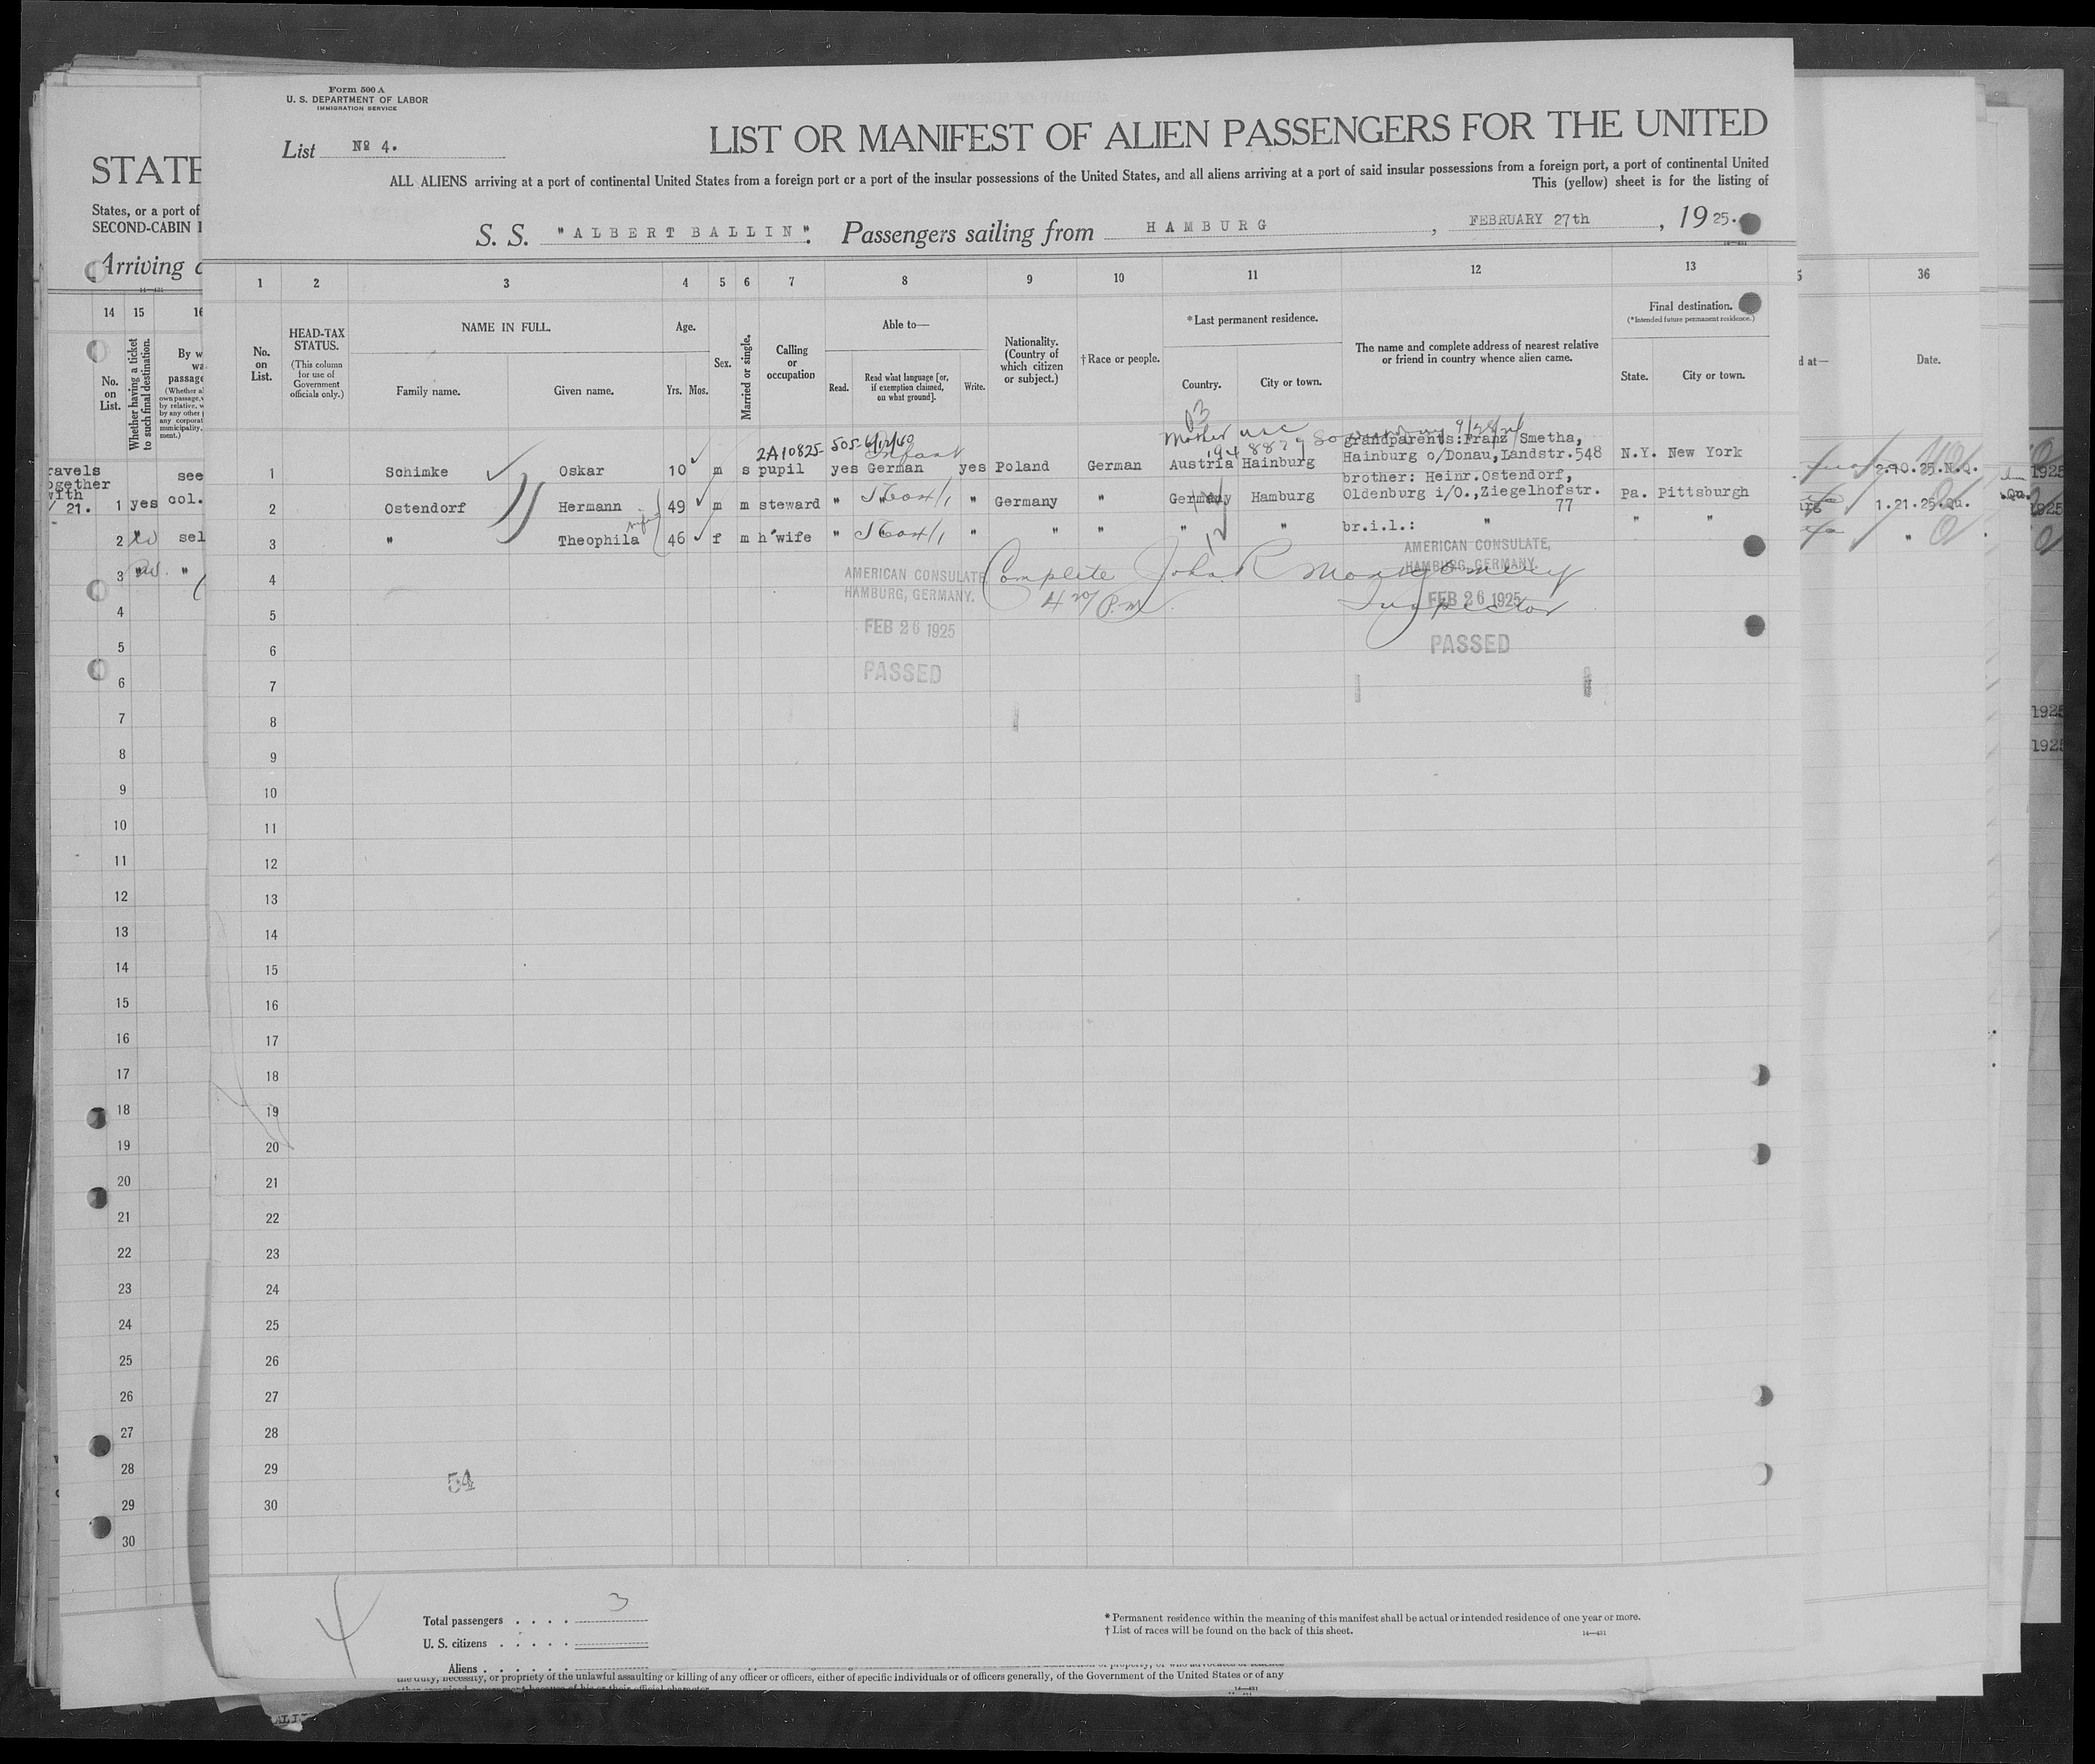 Form 500 A
U. S. DEPARTMENT OF LABOR
IMMIGRATION SERVICE
List No 4.
LIST OR MANIFEST OF ALIEN PASSENGERS FOR THE UNITED
ALL ALIENS arriving at a port of continental United States from a foreign port or a port of the insular possessions of the United States, and all aliens arriving at a port of said insular possessions from a foreign port, a port of continental United
This (yellow) sheet is for the listing of
S. S. "ALBERT BALLIN". Passengers sailing from HAMBURG, FEBRUARY 27th, 1925.
STATE
States, or a port of
SECOND-CABIN
Arriving
1 2 3 4 5 6 7 8 9 10 11 12 13
No. on List.
HEAD-TAX STATUS.
(This column for use of Government officials only.)
NAME IN FULL.
Family name. Given name.
Age.
Yrs. Mos.
Sex.
Married or single.
Calling or occupation
Able to—
Read. Read what language [or, if exemption claimed, on what ground]. Write.
Nationality. (Country of which citizen or subject.)
†Race or people.
*Last permanent residence.
Country. City or town.
The name and complete address of nearest relative or friend in country whence alien came.
Final destination.
(*Intended future permanent residence.)
State. City or town.
14 15 16
No. on List.
Whether having a ticket to such final destination.
By w
passage
36
d at—
Date.
2A10825- 505-6/12/40
Infant
Mother usc
grandparents:Franz Smetha,
1 Schimke Oskar 10 m s pupil yes German yes Poland German Austria Hainburg Hainburg o/Donau,Landstr.548 N.Y. New York
brother: Heinr.Ostendorf,
2 Ostendorf Hermann 49 m m steward " " Germany " Germany Hamburg Oldenburg i/O.,Ziegelhofstr. Pa. Pittsburgh
77
3 " Theophila 46 f m h'wife " " " " " " br.i.l.: " " "
wife
AMERICAN CONSULATE
HAMBURG, GERMANY.
FEB 26 1925
PASSED
Complete John R Montgomery
Inspector
AMERICAN CONSULATE,
HAMBURG, GERMANY.
FEB 26 1925
PASSED
4
5
6
7
8
9
10
11
12
13
14
15
16
17
18
19
20
21
22
23
24
25
26
27
28
29
30
ravels
ogether
with
/ 21. 1 yes col.
see
2 sel
3 "
4
5
6
7
8
9
10
11
12
13
14
15
16
17
18
19
20
21
22
23
24
25
26
27
28
29
30
2.10.25.N.Q.
1.21.25.Qu.
1925
1925
1925
1925
54
4
Total passengers . . . . 3
U. S. citizens . . . . .
Aliens . . . . . .
* Permanent residence within the meaning of this manifest shall be actual or intended residence of one year or more.
† List of races will be found on the back of this sheet.
14—431
the duty, necessity, or propriety of the unlawful assaulting or killing of any officer or officers, either of specific individuals or of officers generally, of the Government of the United States or of any